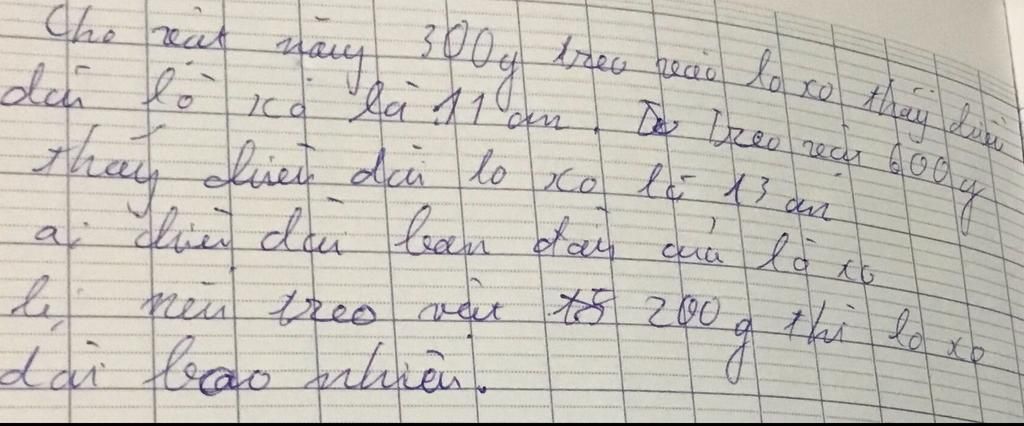 Cho vật nặng 300g treo vào lò xo thấy chiều
dài lò xo là 11 cm. Treo vật 600g
thấy chiều dài lò xo là 13 cm
a, chiều dài ban đầu của lò xo
b, nếu treo vật 200g thì lò xo
dài bao nhiêu.